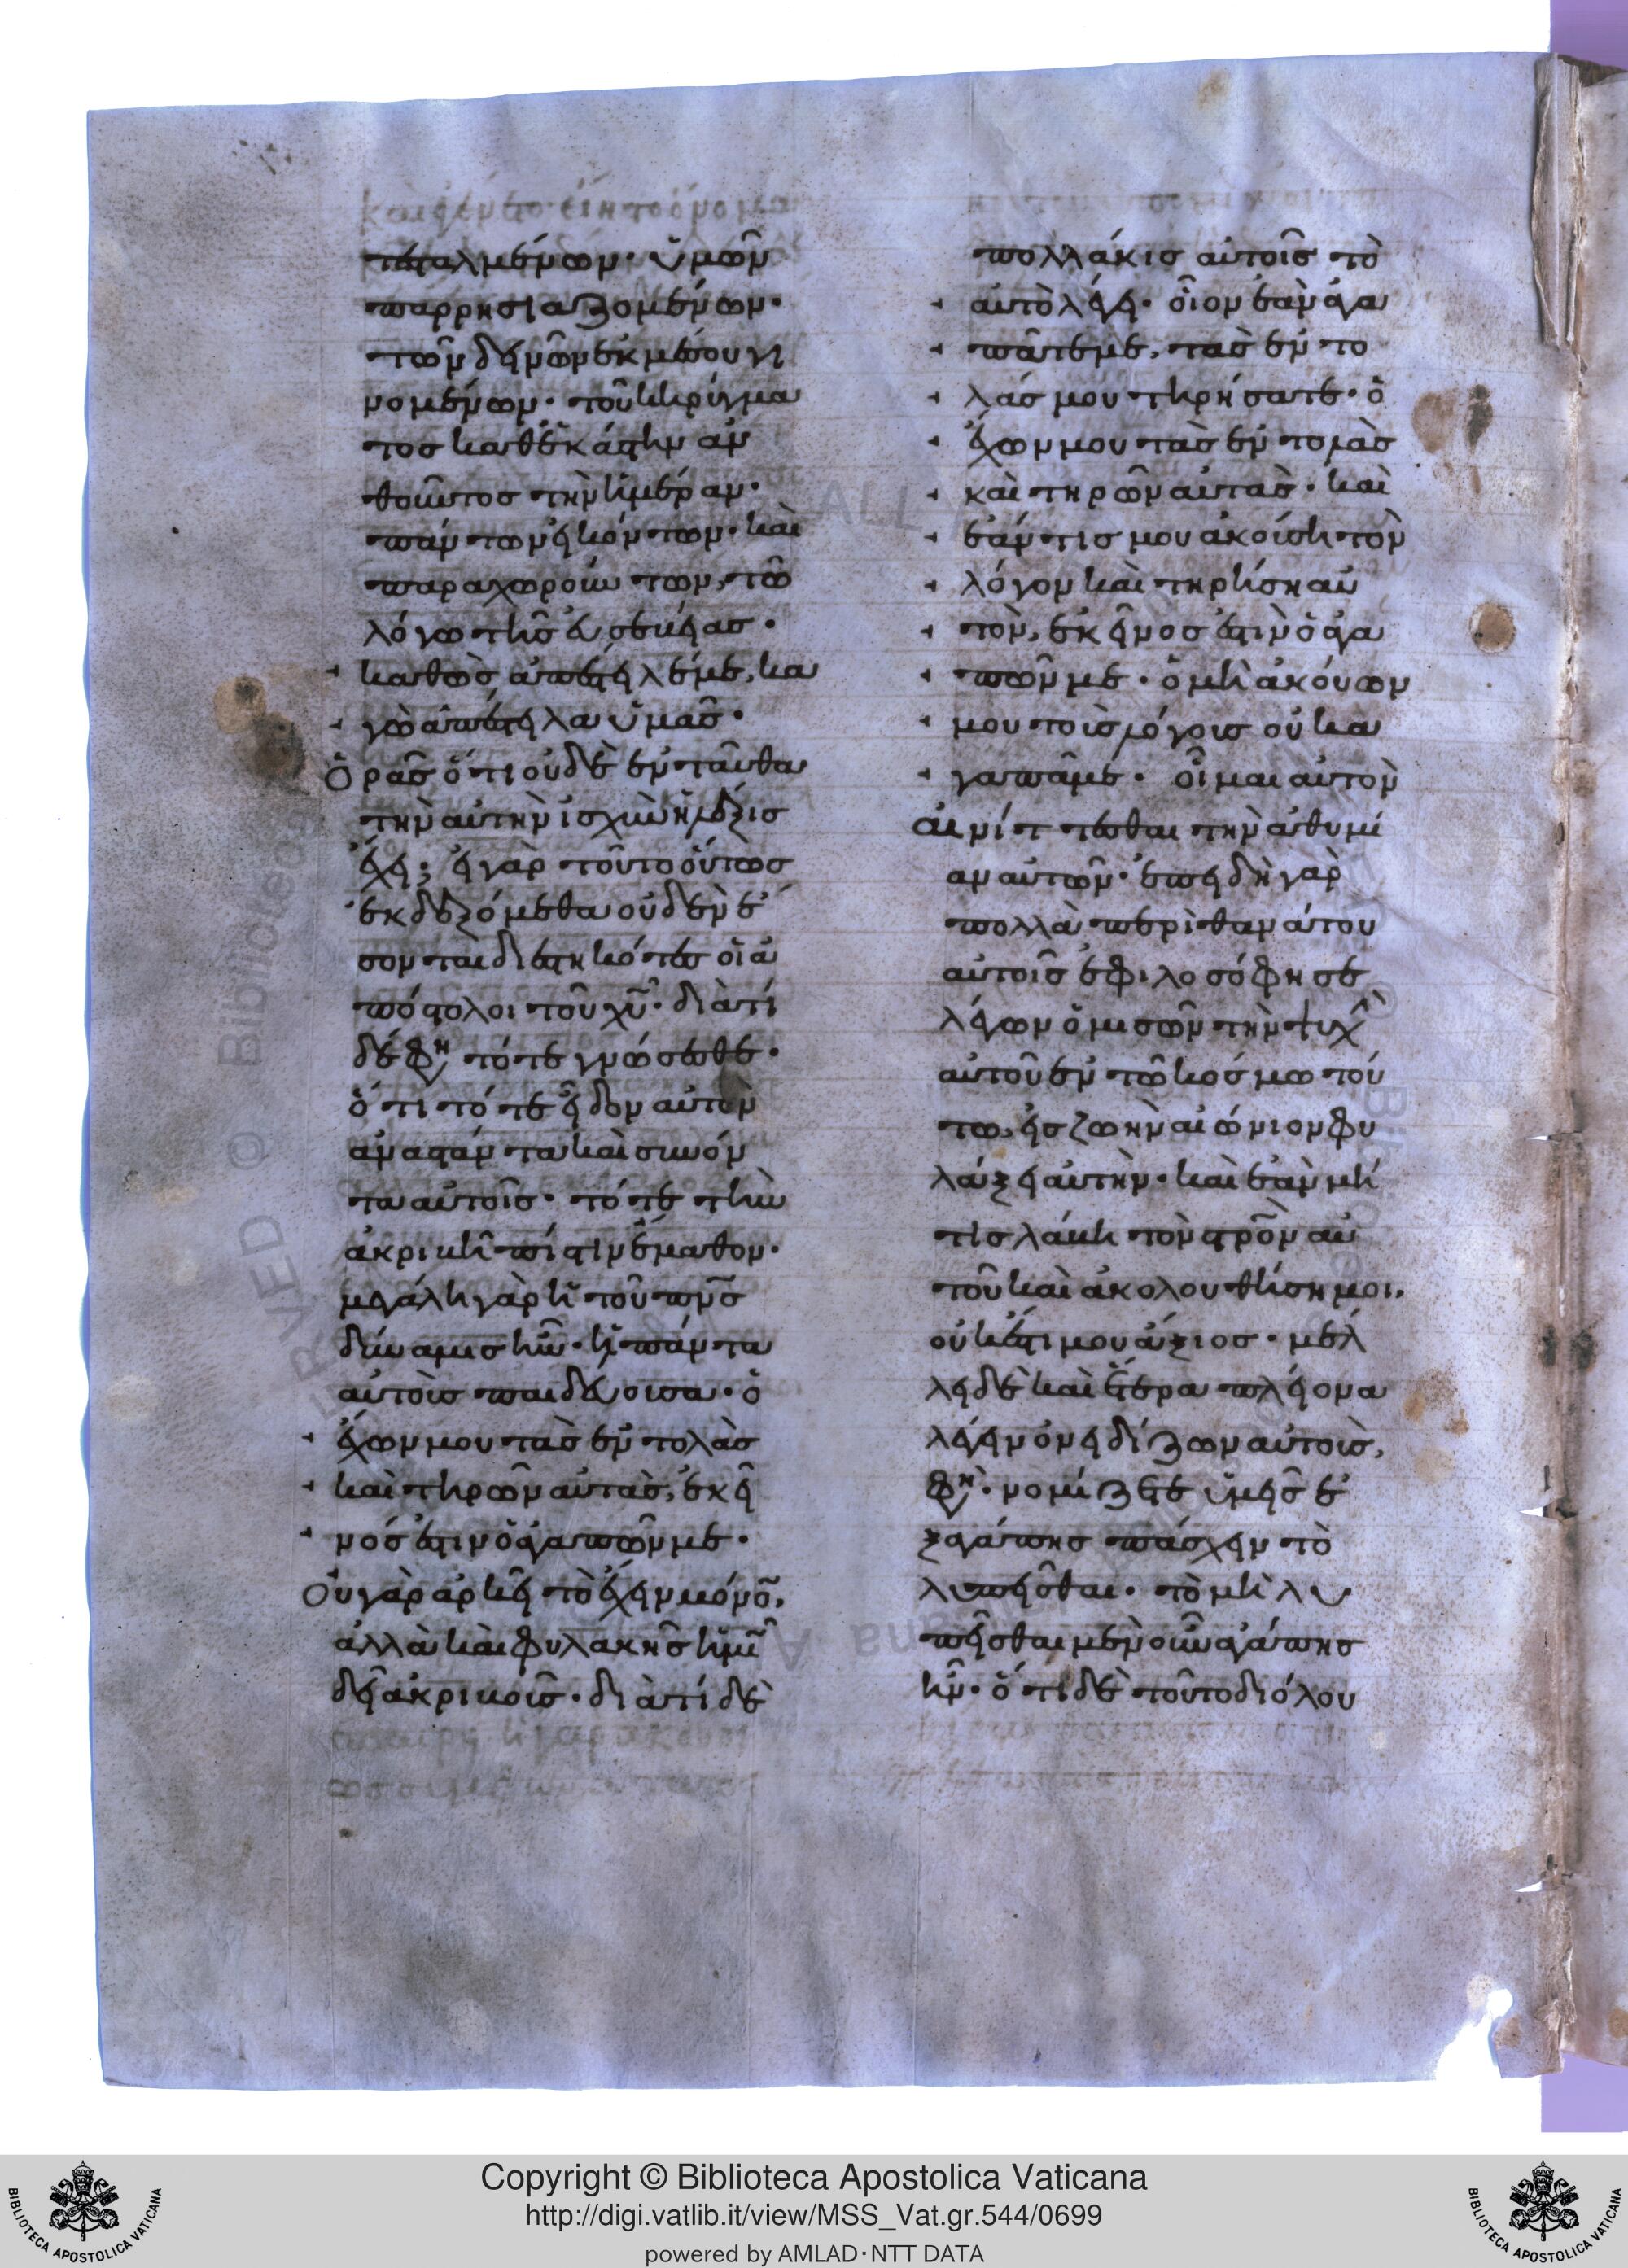 σταλμένων· ὑμῶν
παρρησιαζομένων·
τῶν δεινῶν ἐκ μέσου γι
νομένων· τοῦ κηρύγμα
τος καθ' ἑκάστην ἀν
θοῦντος τὴν ἡμέραν·
πάντων εἰκόντων· καὶ
παραχωρούντων, τῶ
λόγω τῆς εὐσεβείας·
καθὼς ἀπέστειλέ με, κα
γὼ ἀπέστειλα ὑμᾶς·
Ὁρᾶς ὅτι οὐδὲ ἐνταῦθα
τὴν αὐτὴν ἰσχὺν ἡ λέξις
ἔχει; εἰ γὰρ τοῦτο οὕτως
ἐκδεξόμεθα οὐδὲν ἔ
σονται διεστηκότες οἱ ἀ
πόστολοι τοῦ χῦ· διατί
δέ φη τότε γνώσεσθε·
ὅτι τότε εἶδον αὐτὸν
ἀναστάντα καὶ συνόν
τα αὐτοῖς· τότε τὴν
ἀκριβῆ πίστιν ἔμαθον·
μεγάλη γὰρ ἡ τοῦ πνς
δύναμις ἦν· ἡ πάντα
αὐτοὺς παιδεύουσα· ὁ
ἔχων μου τὰς ἐντολὰς
καὶ τηρῶν αὐτὰς, ἐκεῖ
νός ἐστιν ὁ ἀγαπῶν με·
Οὐ γὰρ ἀρκεῖ τὸ ἔχειν μόνον,
ἀλλὰ καὶ φυλακῆς ἡμῖ
δεῖ ἀκριβοῦς· διατί δὲ
πολλάκις αὐτοῖς τὸ
αὐτὸ λέγει· οἷον ἐὰν ἀγα
πᾶτέ με, τὰς ἐντο
λάς μου τηρήσατε· ὁ
ἔχων μου τὰς ἐντολὰς
καὶ τηρῶν αὐτὰς· καὶ
ἐάν τις μου ἀκούση τὸν
λόγον καὶ τηρήση αὐ
τὸν, ἐκεῖνος ἐστὶν ὁ ἀγα
πῶν με· ὁ μὴ ἀκούων
μου τοῖς λόγοις οὐκ ἀ
γαπᾶ με· οἶμαι αὐτὸν
αἰνίττεσθαι τὴν ἀθυμί
αν αὐτῶν· ἐπειδὴ γὰρ
πολλὰ περὶ θανάτου
αὐτοῖς ἐφιλοσόφησε
λέγων ὁ μισῶν τὴν ψυχὴ
αὐτοῦ ἐν τῶ κόσμω τού
τω, εἰς ζωὴν αἰώνιον φυ
λάξει αὐτὴν· καὶ ἐὰν μή
τις λάβη τὸν στρον αὐ
τοῦ καὶ ἀκολουθήση μοι,
οὐκ ἔστι μου ἄξιος· μέλ
λει δὲ καὶ ἕτερα πλείονα
λέγειν ὀνειδίζων αὐτοῖς,
φησὶν· νομίζετε ὑμεῖς ἐ
ξ ἀγάπης πάσχειν τὸ
λυπεῖσθαι· τὸ μὴ λυ
πεῖσθαι μὲν οὖν ἀγάπης
ἦν· ὅτι δὲ τοῦτο διόλου
Copyright © Biblioteca Apostolica Vaticana
http://digi.vatlib.it/view/MSS_Vat.gr.544/0699
powered by AMLAD·NTT DATA
BIBLIOTECA APOSTOLICA VATICANA
BIBLIOTECA APOSTOLICA VATICANA